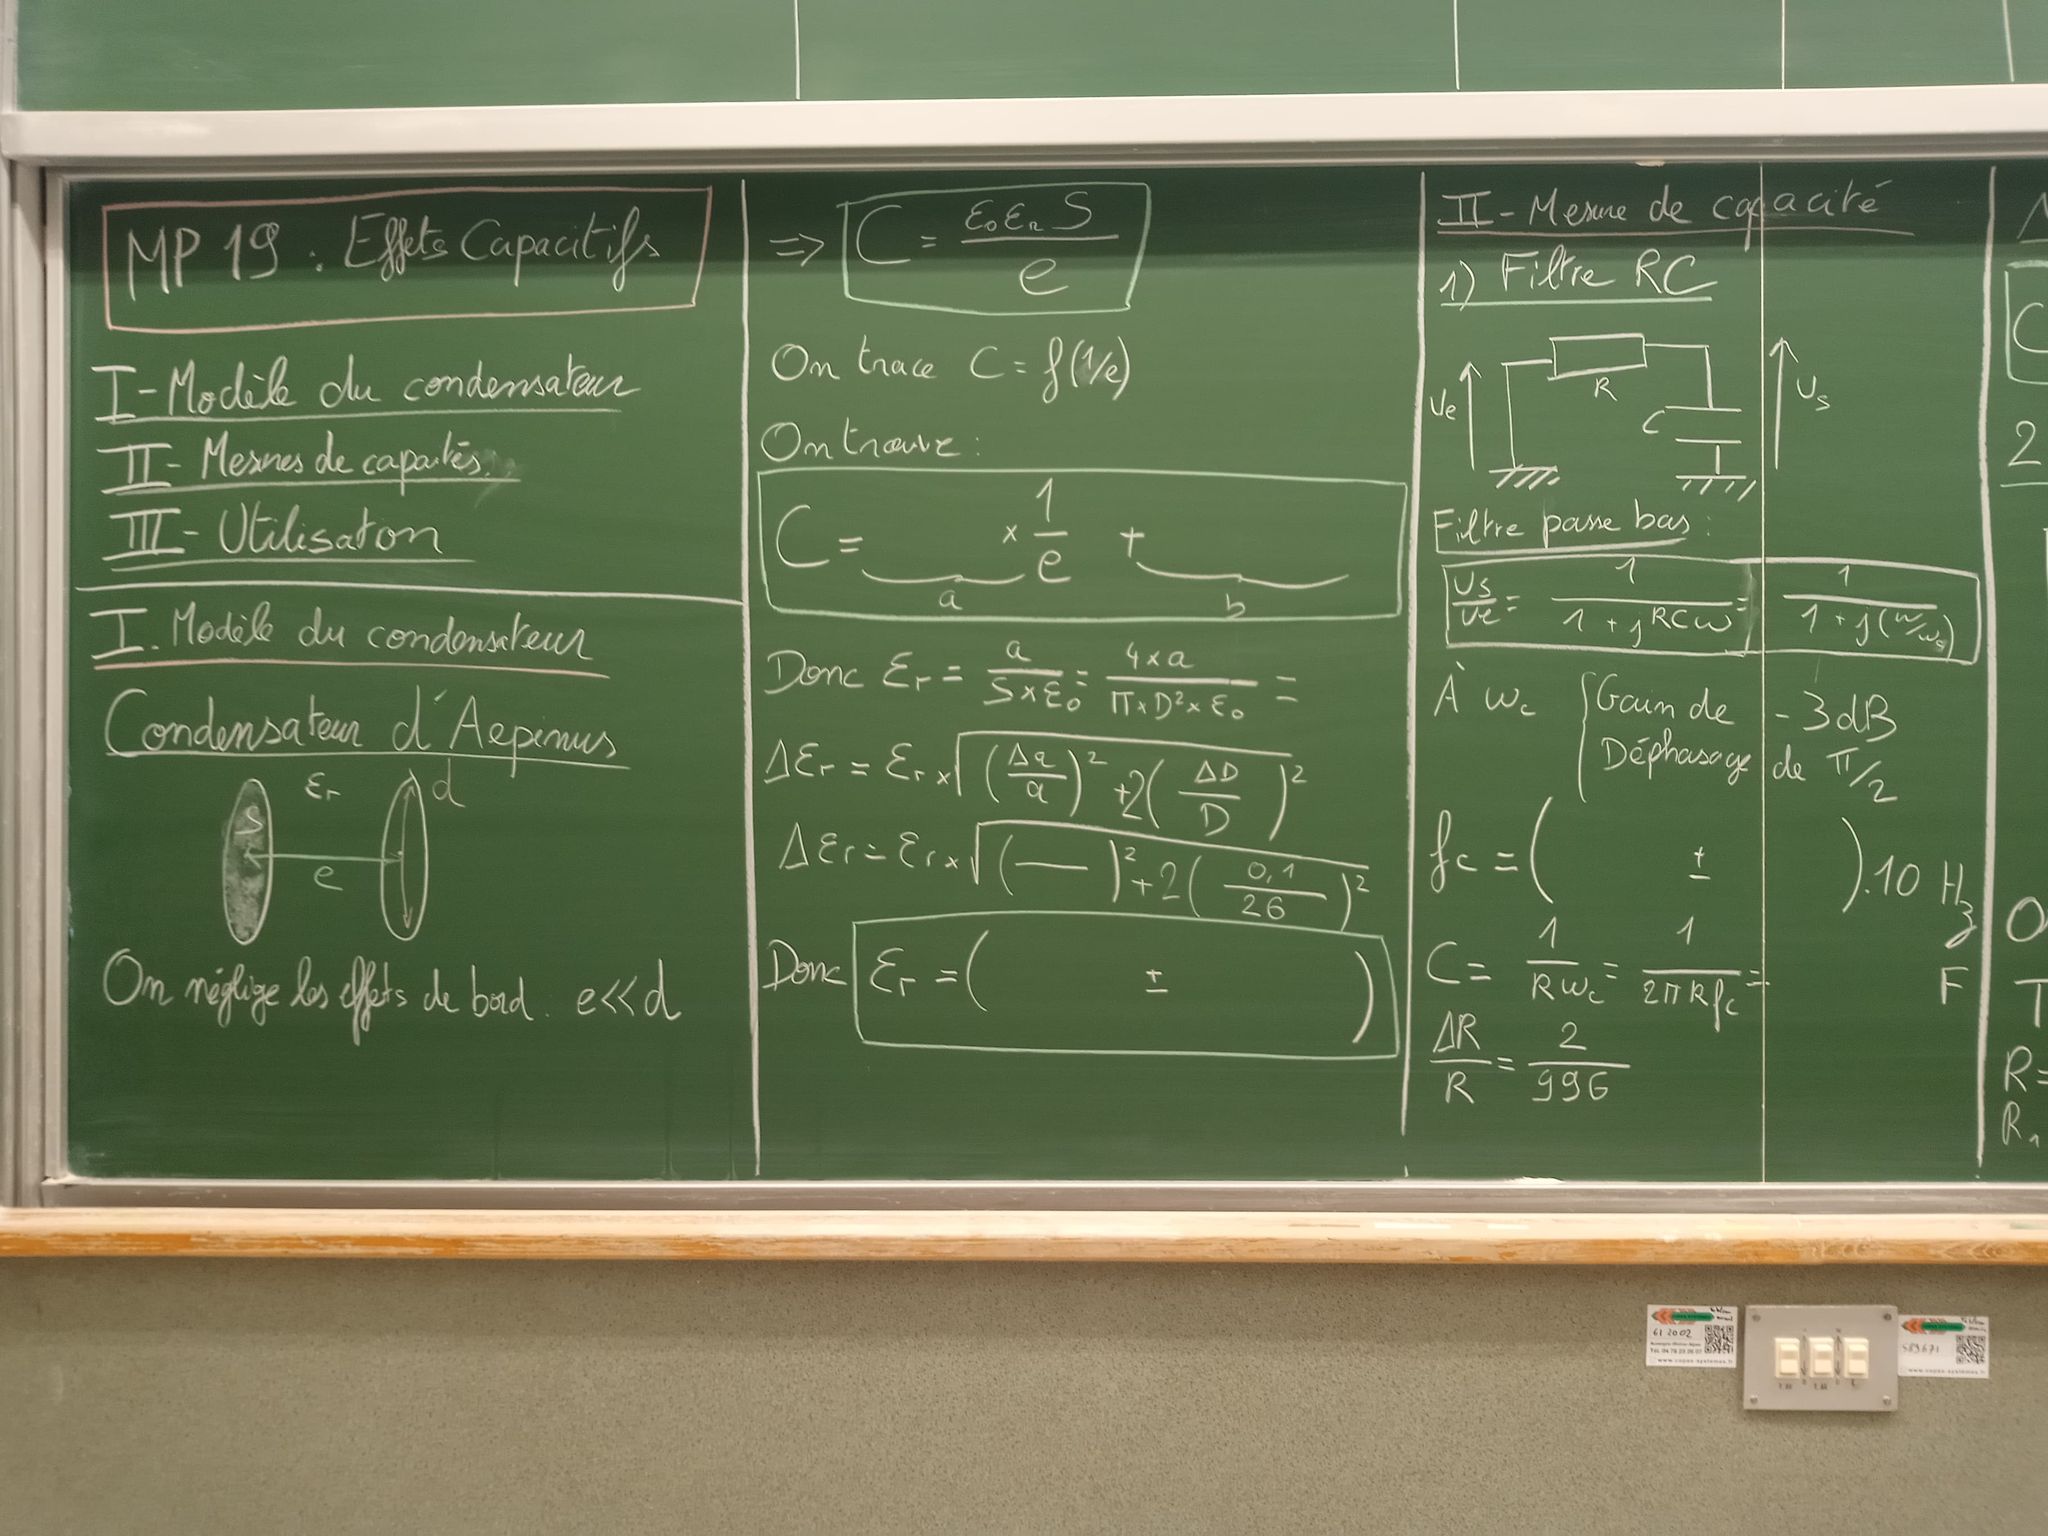 MP 19 : Effets Capacitifs
I - Modèle du condensateur
II - Mesures de capacités.
III - Utilisation
I. Modèle du condensateur
Condensateur d'Aepinus
εr
d
S
e
On néglige les effets de bord. e<<d
=> C = ε₀εr S / e
On trace C = f(1/e)
On trouve :
C = × 1/e +
a b
Donc εr = a/(S×ε₀) = 4×a/(π×D²×ε₀) =
Δεr = εr × √((Δa/a)² + 2(ΔD/D)²)
Δεr = εr × √((—)² + 2(0,1/26)²)
Donc εr = ( ± )
II - Mesure de capacité
1) Filtre RC
Ue
R
C
Us
Filtre passe bas :
Us/Ue = 1/(1 + jRCω) = 1/(1 + j(ω/ω₀))
À ωc { Gain de - 3dB
Déphasage de π/2
fc = ( ± ).10 Hz
C = 1/(Rωc) = 1/(2πRfc) = F
ΔR/R = 2/996
C
2
T
R=
R₁
61 2002
Tél. 04 78 23 26 07
589671